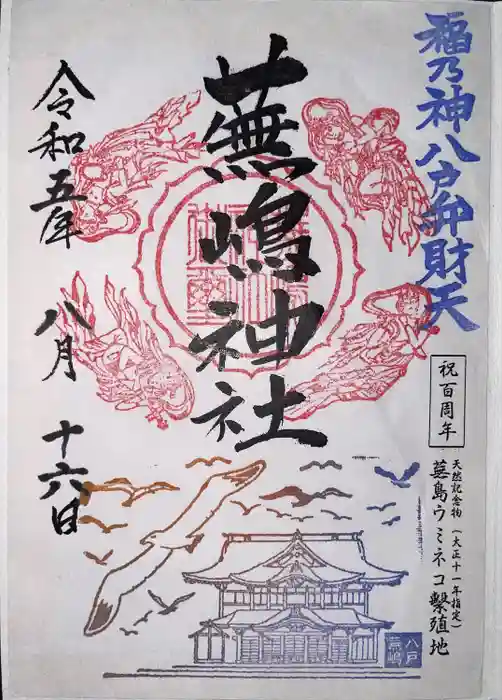 福乃神八戸弁財天
祝百周年
天然記念物（大正十一年指定）
蕪島ウミネコ繫殖地
蕪嶋神社
令和五年
八月
十六日
八戸
蕪嶋